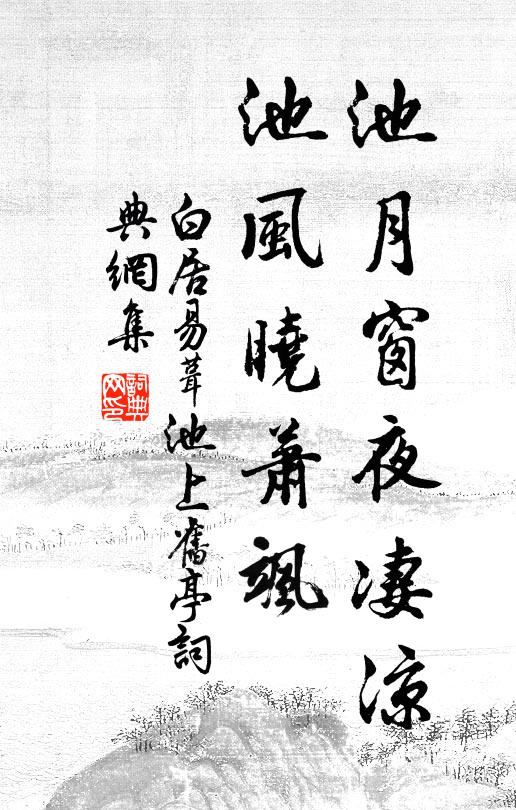 池月窗夜凄涼
池風曉蕭颯
白居易葺池上舊亭詞
典網集
詞典
网印